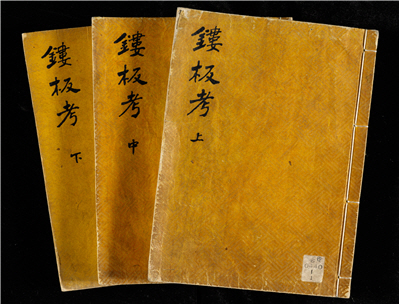 鏤板考 上
鏤板考 中
鏤板考 下